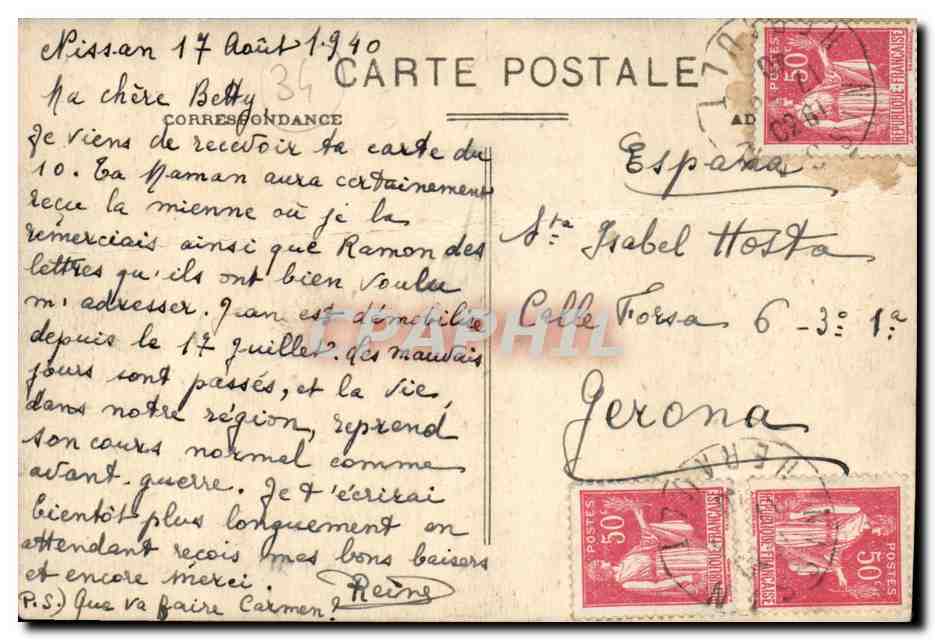 Nissan 17 Août 1.940
34
CARTE POSTALE
Ma chère Betty
CORRESPONDANCE
AD
Je viens de recevoir ta carte du
10. Ta Maman aura certainement
reçu la mienne où je la
remerciais ainsi que Ramon des
lettres qu'ils ont bien voulu
m'adresser. Jean est démobilisé
depuis le 17 Juillet. Les mauvais
jours sont passés, et la vie,
dans notre région, reprend
son cours normal comme
avant-guerre. Je t'écrirai
bientôt plus longuement en
attendant reçois mes bons baisers
et encore merci. Reine
P.S.) Que va faire Carmen?
España
Sta Isabel Hosta
Calle Forsa 6 - 3º 1ª
Gerona
POSTES
50c
REPUBLIQUE FRANÇAISE
POSTES
50c
REPUBLIQUE FRANÇAISE
POSTES
50c
REPUBLIQUE FRANÇAISE
HERAULT
CPAPHIL